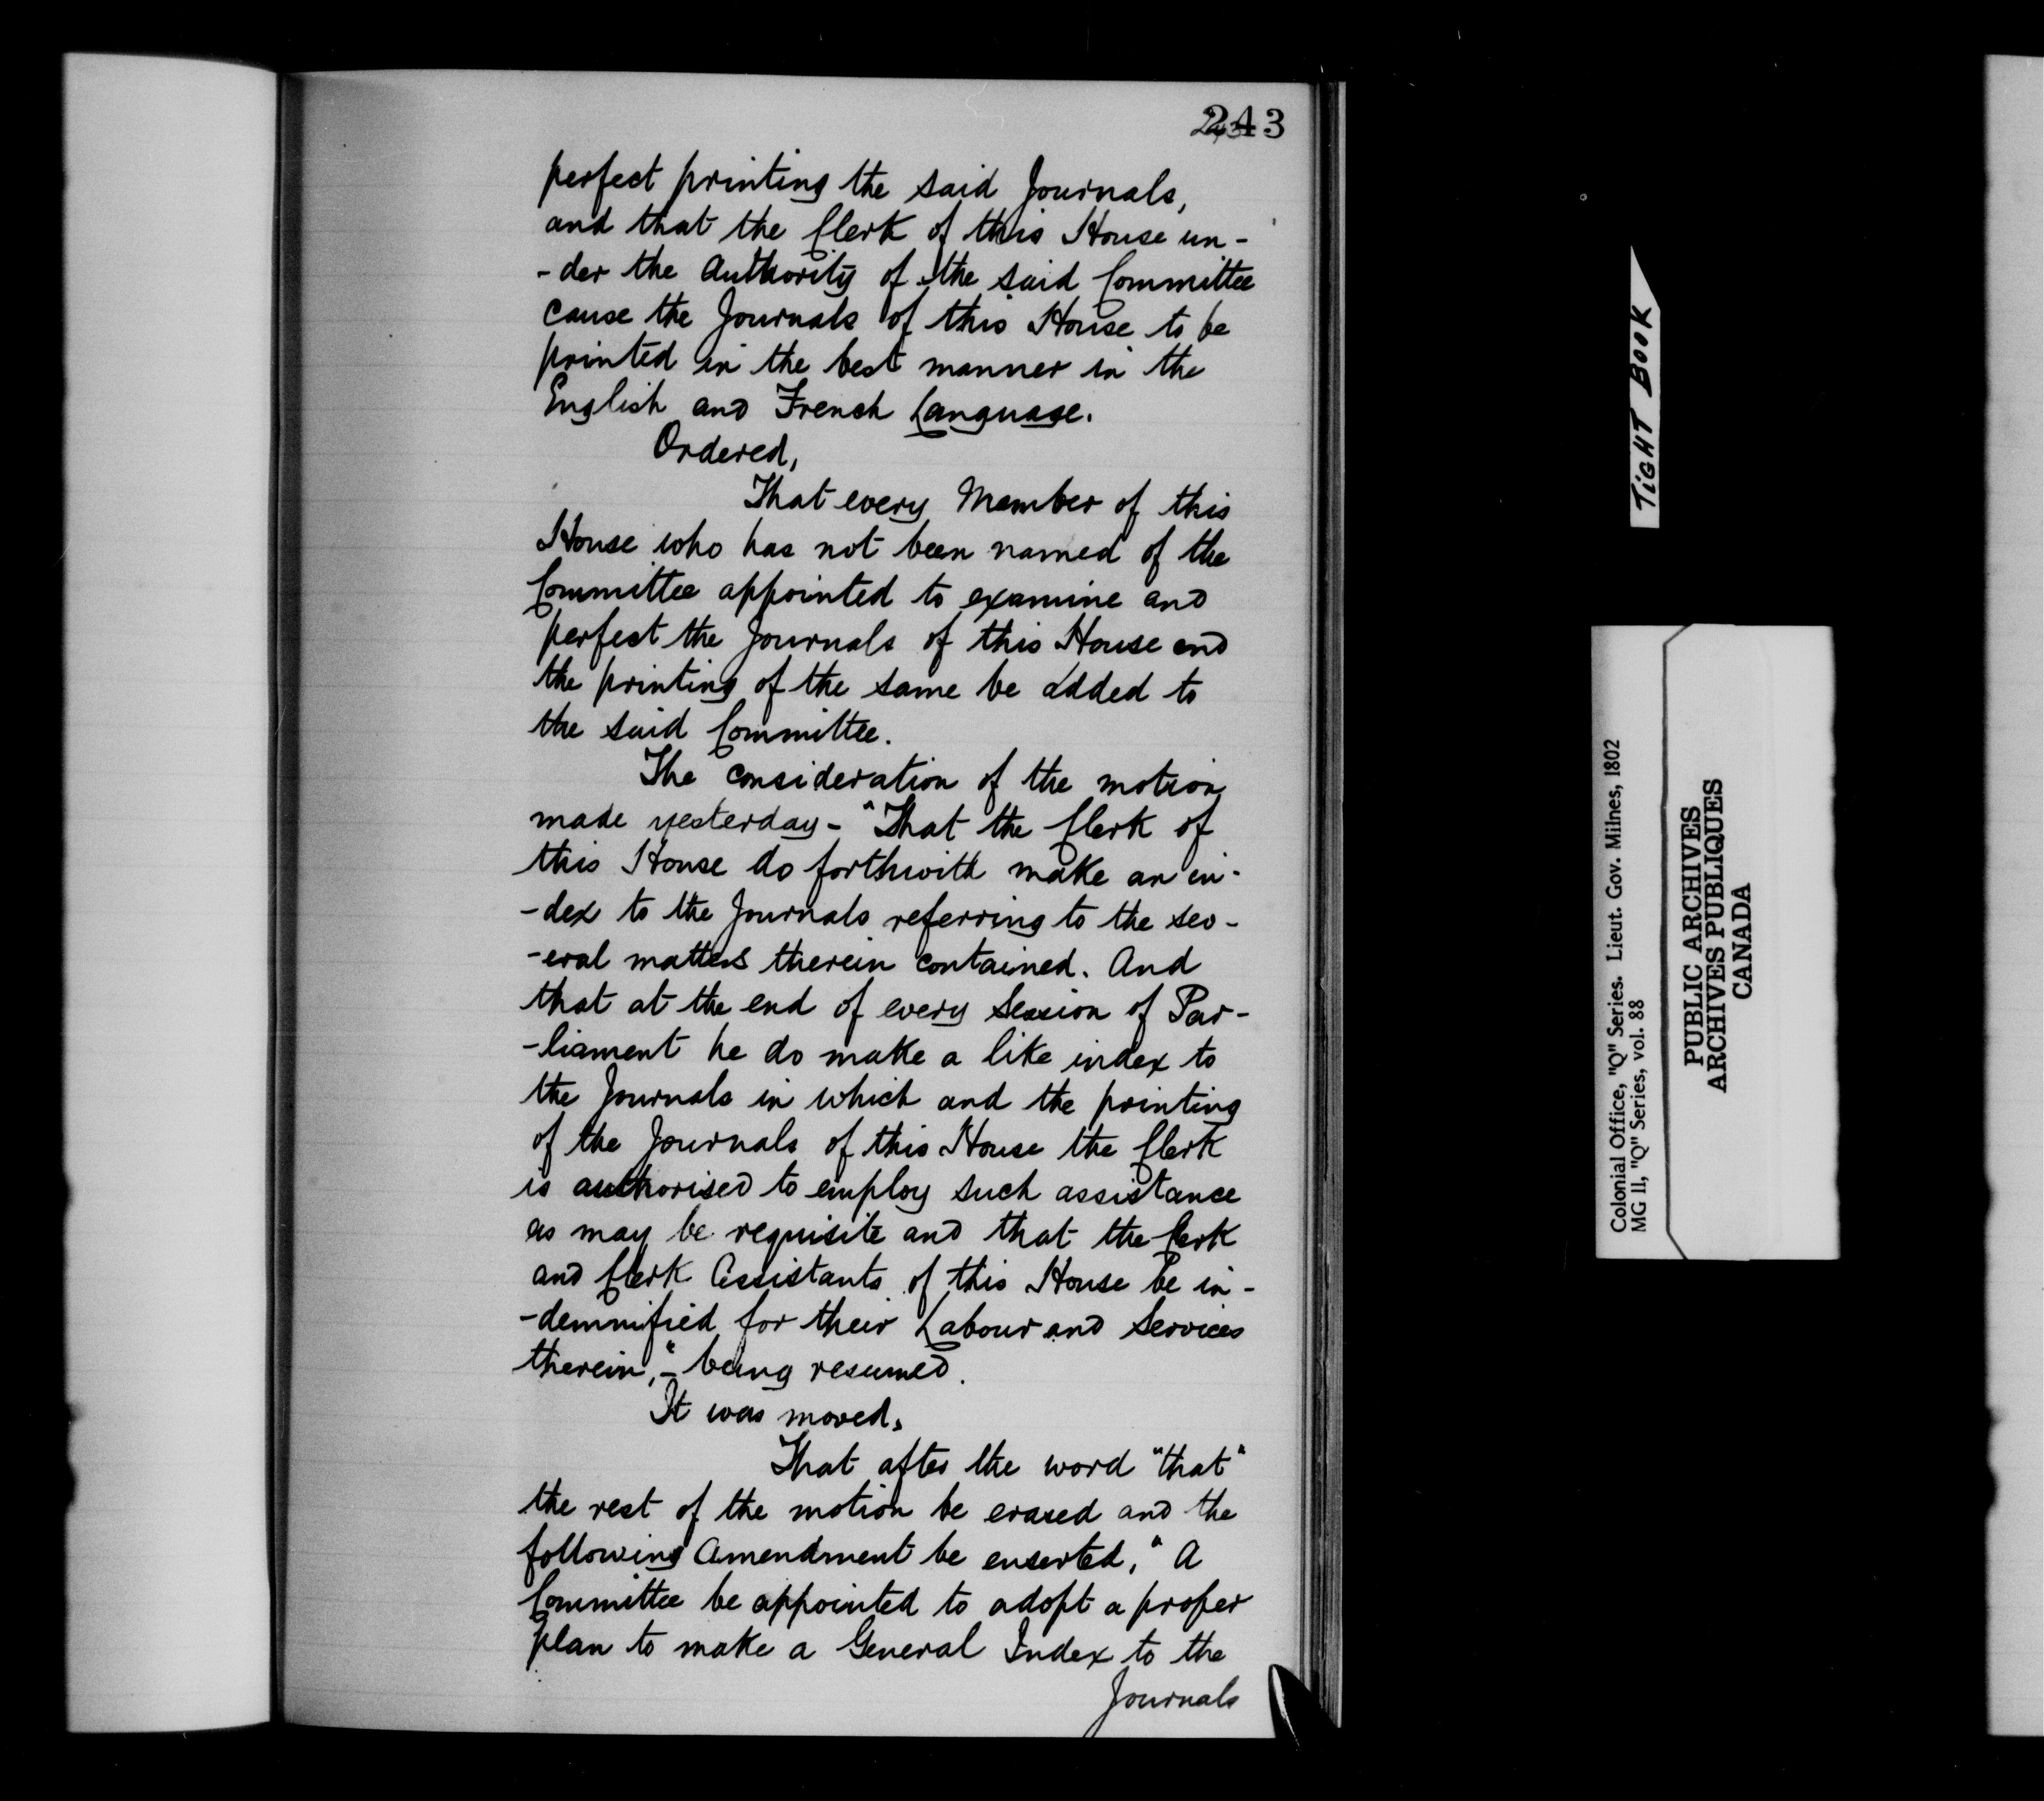 243
perfect printing the said Journals,
and that the Clerk of this House un-
-der the Authority of the said Committee
cause the Journals of this House to be
printed in the best manner in the
English and French Language.
Ordered,
That every Member of this
House who has not been named of the
Committee appointed to examine and
perfect the Journals of this House and
the printing of the same be added to
the said Committee.
The consideration of the motion
made yesterday - "That the Clerk of
this House do forthwith make an in-
-dex to the Journals referring to the sev-
-eral matters therein contained. And
that at the end of every Session of Par-
-liament he do make a like index to
the Journals in which and the printing
of the Journals of this House the Clerk
is authorised to employ such assistance
as may be requisite and that the Clerk
and Clerk Assistants of this House be in-
-demnified for their Labour and Services
therein,"- being resumed.
It was moved,
That after the word "that"
the rest of the motion be erased and the
following Amendment be enserted, "A
Committee be appointed to adopt a proper
plan to make a General Index to the
Journals
TIGHT BOOK
Colonial Office, "Q" Series. Lieut. Gov. Milnes, 1802
MG 11, "Q" Series, vol. 88
PUBLIC ARCHIVES
ARCHIVES PUBLIQUES
CANADA